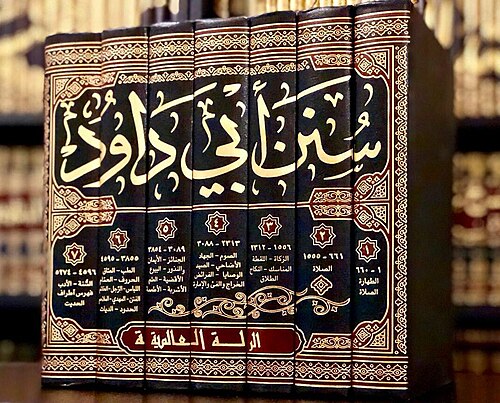 سُنَن أَبِي دَاوُد
١
١ - ٦٦٠
الطهارة
الصلاة
٢
٦٦١ - ١٥٥٥
الصلاة
٣
١٥٥٦ - ٢٣١٢
الزكاة - اللقطة
المناسك - النكاح
الطلاق
٤
٢٣١٣ - ٣٠٨٨
الصوم - الجهاد
الأضاحي - الصيد
الوصايا - الفرائض
الخراج والفيء والإمارة
٥
٣٠٨٩ - ٣٨٥٤
الجنائز - الأيمان
والنذور - البيوع
الأقضية - العلم
الأشربة - الأطعمة
٦
٣٨٥٥ - ٤٥٩٥
الطب - العتاق
الحروف - الحمام
اللباس - الترجل
الفتن - المهدي - الملاحم
الحدود - الديات
٧
٤٥٩٦ - ٥٢٧٤
السنة - الأدب
فهرس أطراف
الحديث
الرسالة العالمية